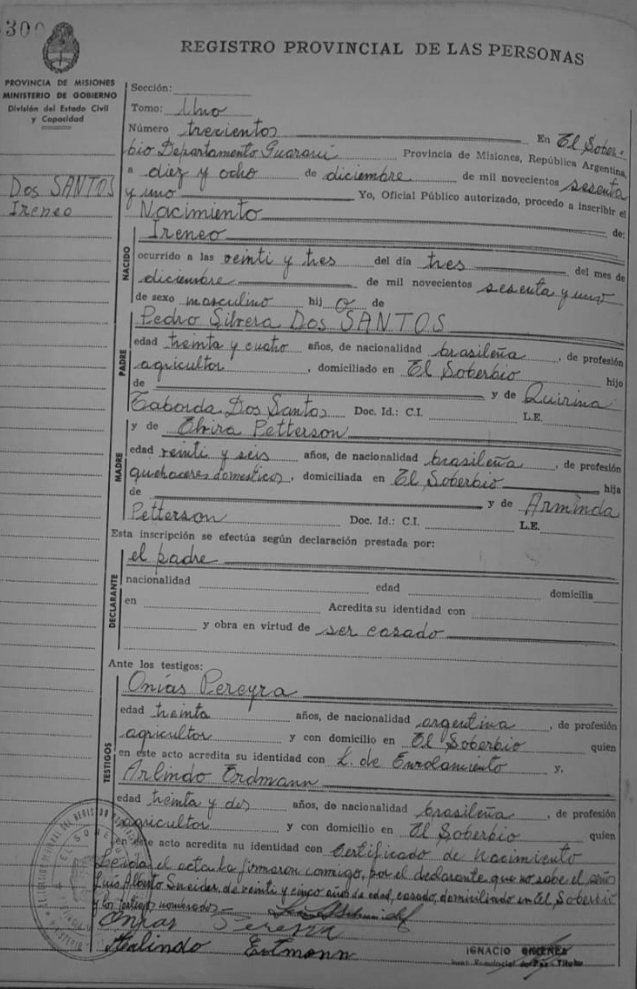 300
REGISTRO PROVINCIAL DE LAS PERSONAS
PROVINCIA DE MISIONES
MINISTERIO DE GOBIERNO
División del Estado Civil
y Capacidad
Dos SANTOS
Ireneo
Sección:
Tomo: Uno
Número trecientos En El Sober-
bio Departamento Guarani Provincia de Misiones, República Argentina,
a diez y ocho de diciembre de mil novecientos sesenta
y uno Yo, Oficial Público autorizado, procedo a inscribir el
Nacimiento de:
NACIDO
Ireneo
ocurrido a las veinti y tres del día tres del mes de
diciembre de mil novecientos sesenta y uno
de sexo masculino hij o de
PADRE
Pedro Silvera Dos SANTOS
edad treinta y cuatro años, de nacionalidad brasileña, de profesión
agricultor, domiciliado en El Soberbio hijo
de y de Quirina
Taborda Dos Santos Doc. Id.: C.I. L.E.
MADRE
y de Elvira Petterson
edad veinti y seis años, de nacionalidad brasileña, de profesión
quehaceres domesticos, domiciliada en El Soberbio hija
de y de Arminda
Petterson Doc. Id.: C.I. L.E.
Esta inscripción se efectúa según declaración prestada por:
DECLARANTE
el padre
nacionalidad edad domicilia
en Acredita su identidad con
y obra en virtud de ser casado
Ante los testigos:
TESTIGOS
Onías Pereyra
edad treinta años, de nacionalidad argentina, de profesión
agricultor y con domicilio en El Soberbio quien
en este acto acredita su identidad con L. de Enrolamiento y,
Arlindo Erdmann
edad treinta y dos años, de nacionalidad brasileña, de profesión
agricultor y con domicilio en El Soberbio quien
en este acto acredita su identidad con Certificado de Nacimiento
el acta la firmaron conmigo, por el declarante que no sabe el
Luis Alberto Sneider, de veinti y cinco años de edad, casado, domiciliado en El Soberbio
y los testigos nombrados
Pereyra
IGNACIO GIMENEZ